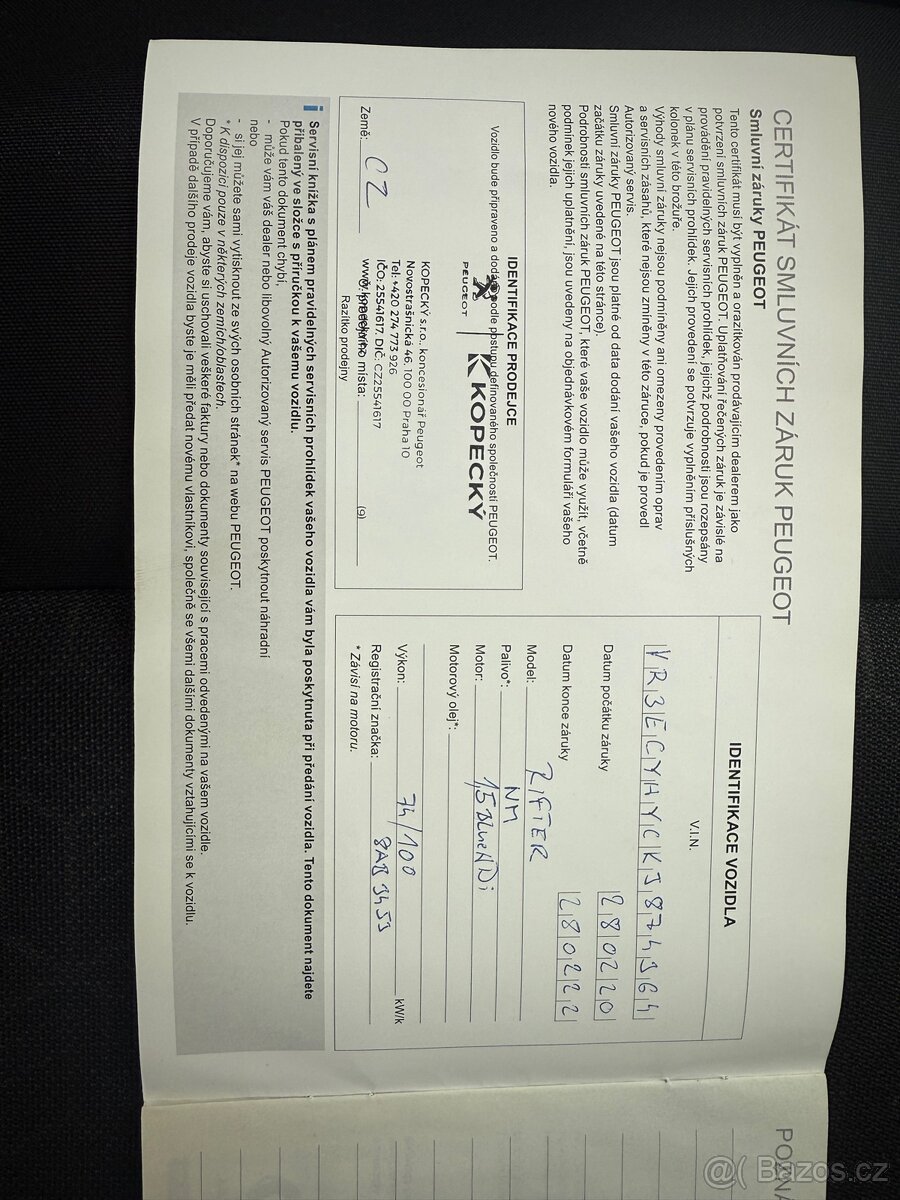 CERTIFIKÁT SMLUVNÍCH ZÁRUK PEUGEOT
Smluvní záruky PEUGEOT
Tento certifikát musí být vyplněn a orazítkován prodávajícím dealerem jako
potvrzení smluvních záruk PEUGEOT. Uplatňování řečených záruk je závislé na
provádění pravidelných servisních prohlídek, jejichž podrobnosti jsou rozepsány
v plánu servisních prohlídek. Jejich provedení se potvrzuje vyplněním příslušných
kolonek v této brožuře.
Výhody smluvní záruky nejsou podmíněny ani omezeny provedením oprav
a servisních zásahů, které nejsou zmíněny v této záruce, pokud je provedl
Autorizovaný servis.
Smluvní záruky PEUGEOT jsou platné od data dodání vašeho vozidla (datum
začátku záruky uvedené na této stránce).
Podrobnosti smluvních záruk PEUGEOT, které vaše vozidlo může využít, včetně
podmínek jejich uplatnění, jsou uvedeny na objednávkovém formuláři vašeho
nového vozidla.
IDENTIFIKACE PRODEJCE
Vozidlo bude připraveno a dodáno podle postupu definovaného společností PEUGEOT.
PEUGEOT
KOPECKÝ
KOPECKÝ s.r.o., koncesionář Peugeot
Novostrašnická 46, 100 00 Praha 10
Tel: +420 274 773 926
IČO: 25541617, DIČ: CZ25541617
Země: CZ
prodejního místa: (9)
Razítko prodejny
IDENTIFIKACE VOZIDLA
V.I.N.
VR3ECYHYCKJ874564
Datum počátku záruky 280220
Datum konce záruky 280222
Model: RIFTER
Palivo*: NM
Motor: 1,5 BlueHDi
Motorový olej*:
Výkon: 74/100 kW/k
Registrační značka: 8AB 3453
* Závisí na motoru.
i Servisní knížka s plánem pravidelných servisních prohlídek vašeho vozidla vám byla poskytnuta při předání vozidla. Tento dokument najdete
přibalený ve složce s příručkou k vašemu vozidlu.
Pokud tento dokument chybí,
- může vám váš dealer nebo libovolný Autorizovaný servis PEUGEOT poskytnout náhradní
nebo
- si jej můžete sami vytisknout ze svých osobních stránek* na webu PEUGEOT.
* K dispozici pouze v některých zemích/oblastech.
Doporučujeme vám, abyste si uschovali veškeré faktury nebo dokumenty související s pracemi odvedenými na vašem vozidle.
V případě dalšího prodeje vozidla byste je měli předat novému vlastníkovi, společně se všemi dalšími dokumenty vztahujícími se k vozidlu.
POZNÁ
@ Bazos.cz